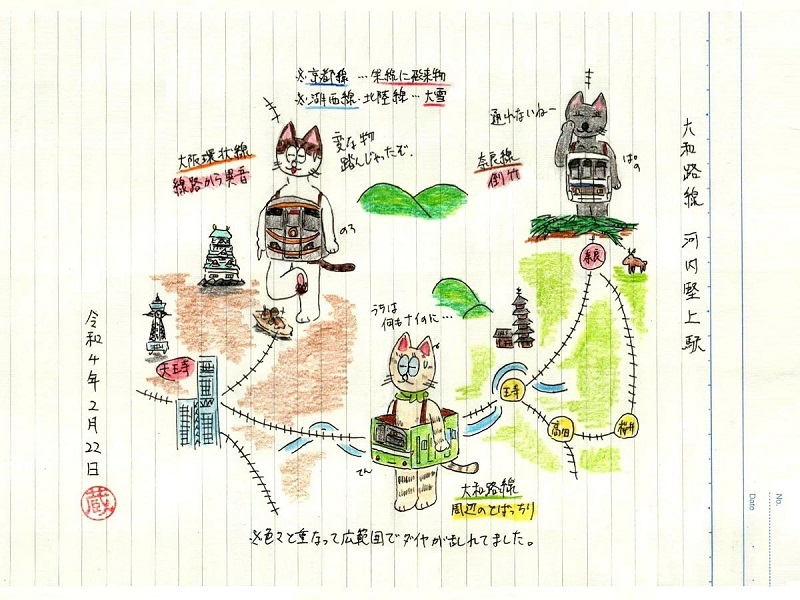 大和路線 河内堅上駅
※京都線…架線に飛来物
※湖西線・北陸線…大雪
通れないねー
奈良線
倒竹
ぱの
大阪環状線
線路から異音
変な物
踏んじゃったぞ。
のろ
奈良
うちは
何もナイのに…
天王寺
王寺
高田
桜井
てん
大和路線
周辺のとばっちり
※色々と重なって広範囲でダイヤが乱れてました。
令和4年2月22日
蔵
No.
Date